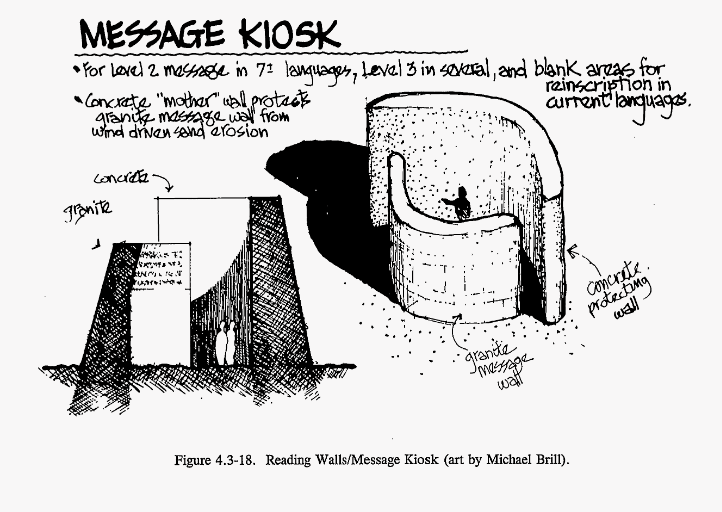 MESSAGE KIOSK
• For Level 2 message in 7± languages, Level 3 in several, and blank areas for
reinscription in
current languages.
• Concrete "mother" wall protects
granite message wall from
wind driven sand erosion
concrete
granite
concrete
protecting
wall
granite
message
wall
Figure 4.3-18. Reading Walls/Message Kiosk (art by Michael Brill).